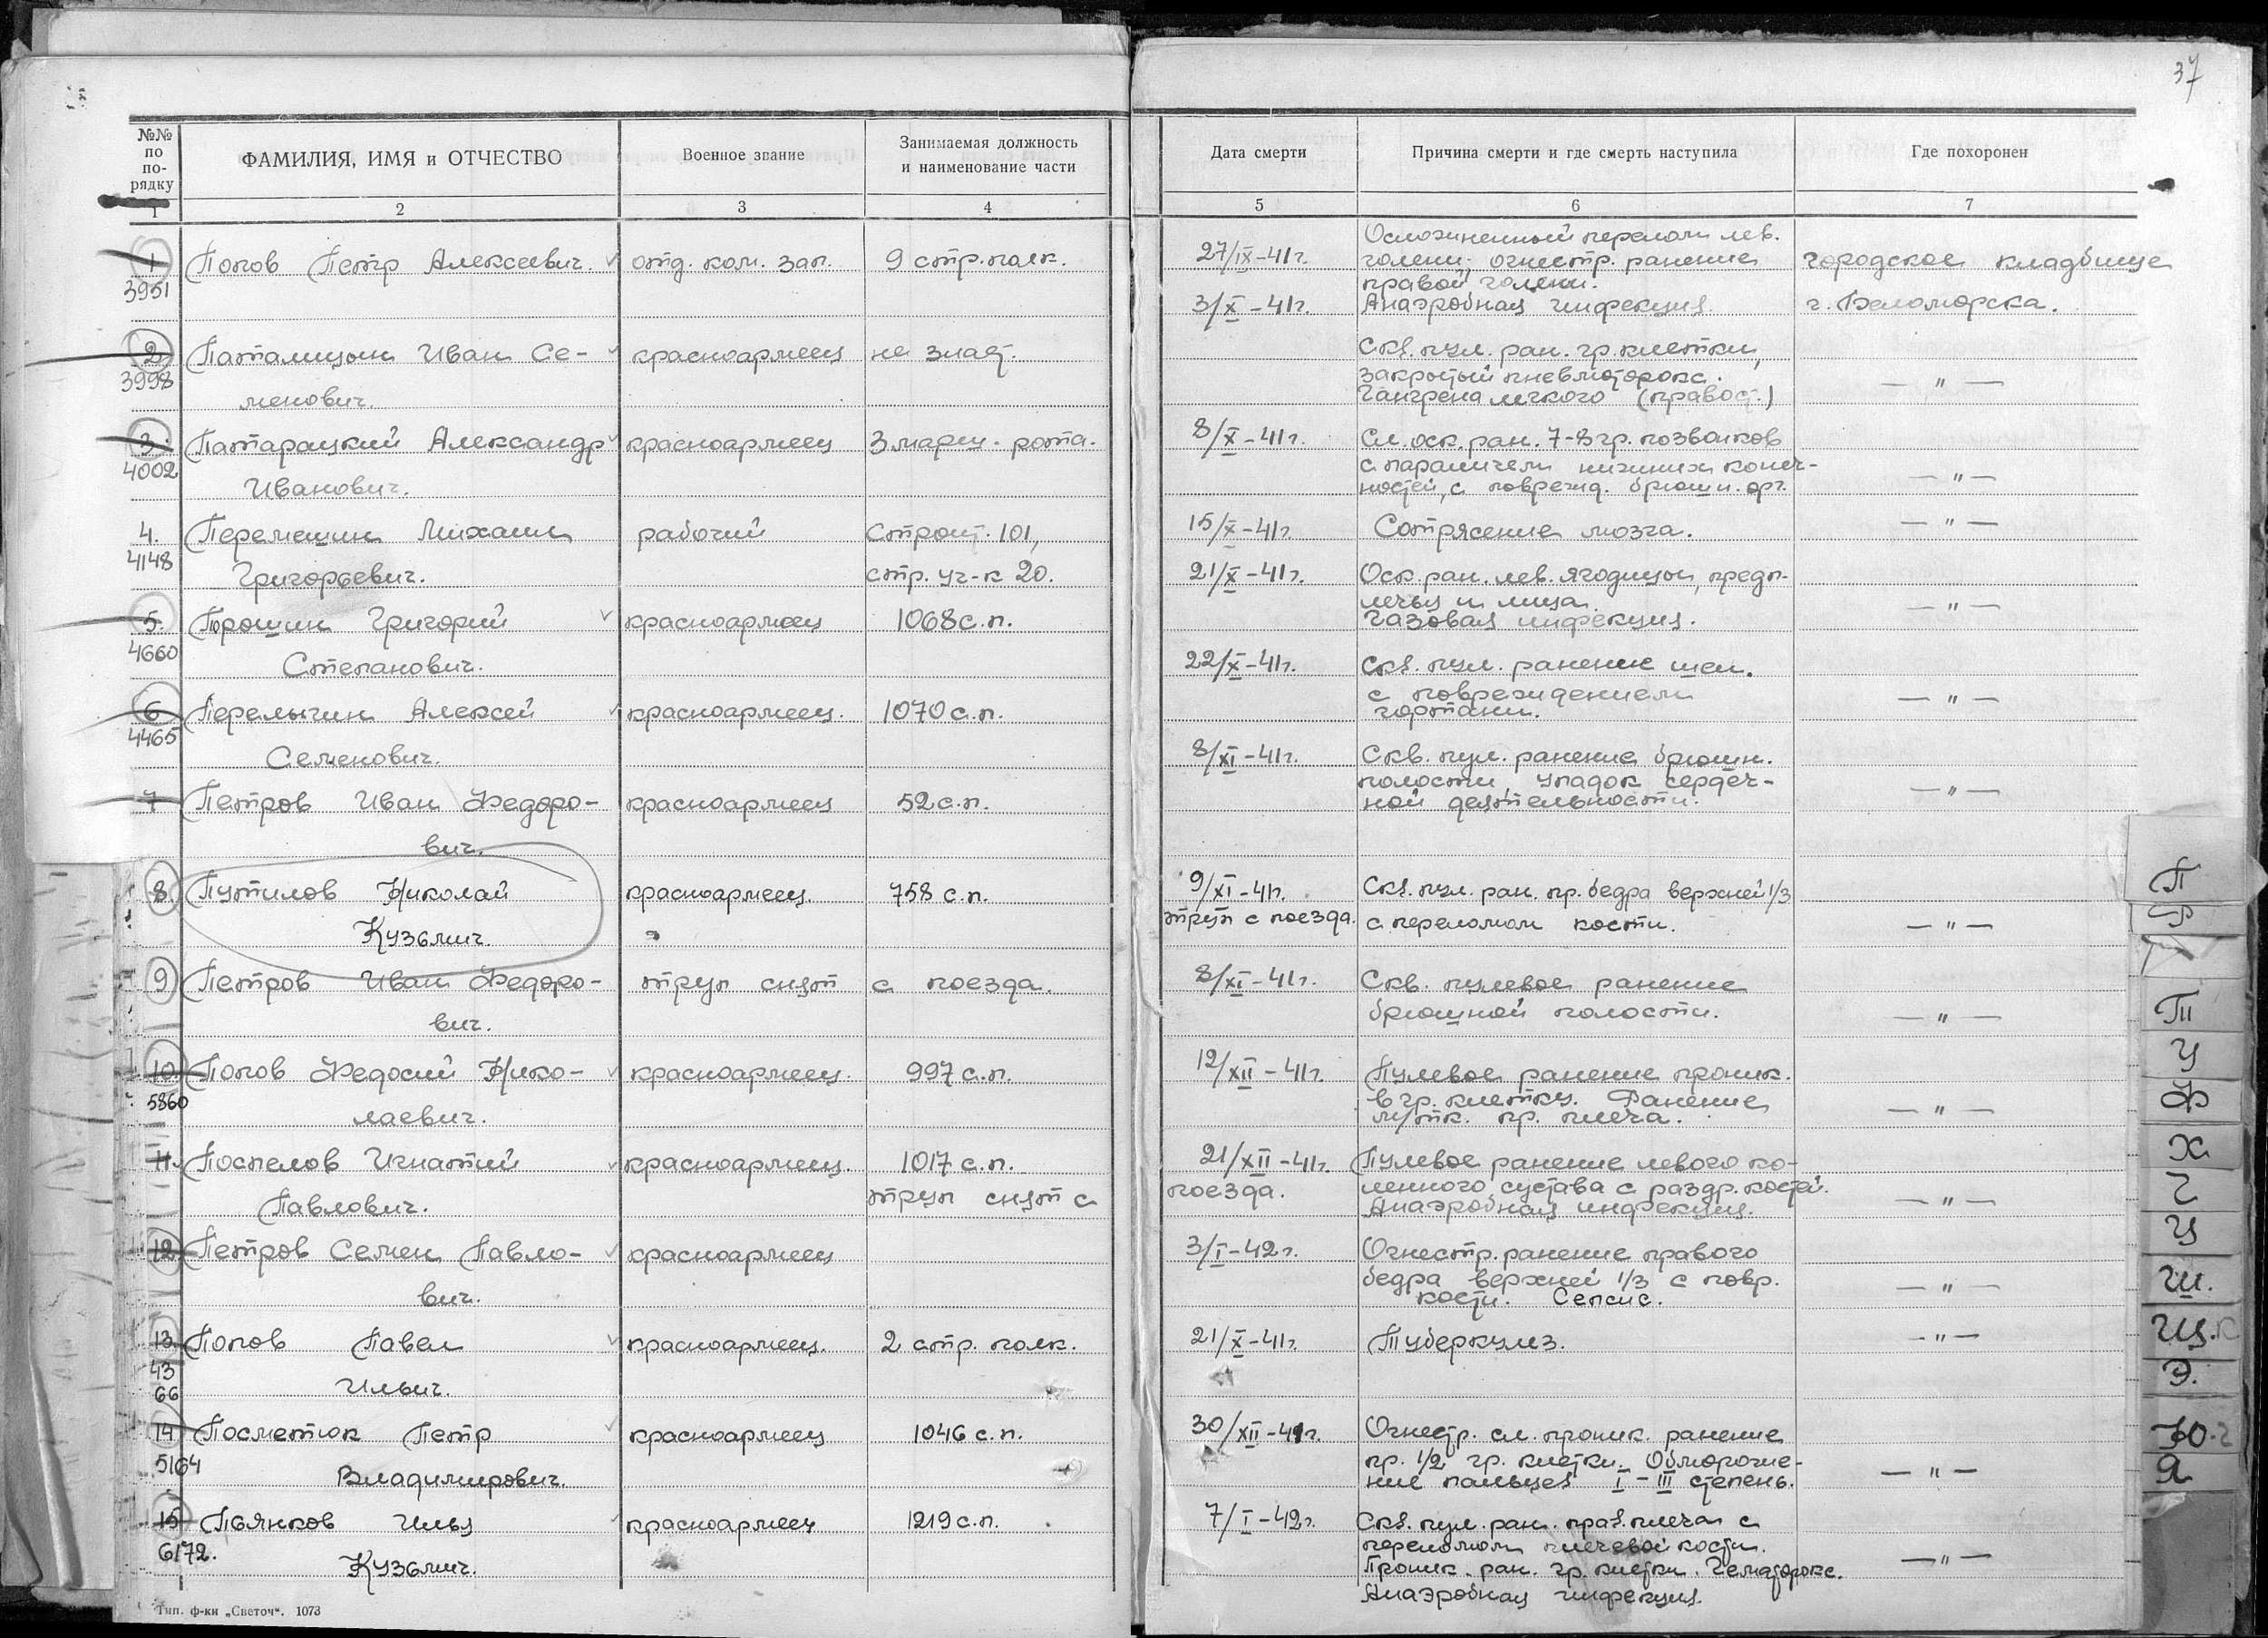 37
№№ по по-рядку
ФАМИЛИЯ, ИМЯ и ОТЧЕСТВО
Военное звание
Занимаемая должность и наименование части
Дата смерти
Причина смерти и где смерть наступила
Где похоронен
1 2 3 4 5 6 7
1 Попов Петр Алексеевич. отд. ком. зап. 9 стр. полк.
3951
27/IX-41г. Осложненный перелом лев.
голени, огнестр. ранение городское кладбище
правой голени.
3/X-41г. Анаэробная инфекция. г. Беломорска.
2 Паталицын Иван Се- красноармеец не знает.
3998
менович.
Скв. пул. ран. гр. клетки,
закрытый пневмоторокс. — " —
Гангрена легкого (правост.)
3. Патарацкий Александр красноармеец 3 марш. рота.
4002
Иванович.
8/X-41г. Сл. оск. ран. 7-8 гр. позвонков
с параличем нижних конеч-
ностей, с поврежд. брюшн. орг. — " —
4. Перемешин Михаил рабочий Строит. 101,
4148
Григорьевич. стр. уч-к 20.
15/X-41г. Сотрясение мозга. — " —
21/X-41г. Оск. ран. лев. ягодицы, предп-
лечья и лица. — " —
Газовая инфекция.
5. Порошин Григорий красноармеец 1068 с.п.
4660
Степанович.
22/X-41г. Скв. пул. ранение шеи.
с повреждением — " —
гортани.
6 Перелыгин Алексей красноармеец. 1070 с.п.
4465
Семенович.
8/XI-41г. Скв. пул. ранение брюшн.
полости, упадок сердеч- — " —
ной деятельности.
7 Петров Иван Федоро- красноармеец 52 с.п.
вич.
8. Путилов Николай красноармеец. 758 с.п.
Кузьмич.
9/XI-41г. Скв. пул. ран. пр. бедра верхней 1/3
труп с поезда. с переломом кости. — " —
9 Петров Иван Федоро- труп снят с поезда.
вич.
8/XI-41г. Скв. пулевое ранение
брюшной полости. — " —
10. Попов Федосий Нико- красноармеец. 997 с.п.
5860
лаевич.
12/XII-41г. Пулевое ранение проник.
в гр. клетку. Ранение — " —
мутк. пр. плеча.
11. Поспелов Игнатий красноармеец. 1017 с.п.
Павлович. труп снят с
21/XII-41г. Пулевое ранение левого ко-
поезда. ленного сустава с раздр. костей.
Анаэробная инфекция. — " —
12. Петров Семен Павло- красноармеец
вич.
3/I-42г. Огнестр. ранение правого
бедра верхней 1/3 с повр. — " —
кости. Сепсис.
13. Попов Павел красноармеец. 2 стр. полк.
43
66 Ильич.
21/X-41г. Туберкулез. — " —
14 Посметюк Петр красноармеец 1046 с.п.
5164
Владимирович.
30/XII-41г. Огнестр. сл. проник. ранение
пр. 1/2 гр. клетки. Обмороже-
ние пальцев I - III степень. — " —
15 Пьянков Илья красноармеец 1219 с.п.
6172.
Кузьмич.
7/I-42г. Скв. пул. ран. прав. плеча с
переломом плечевой кости.
Проник. ран. гр. клетки. Гематорокс. — " —
Анаэробная инфекция.
Тип. ф-ки „Светоч“. 1073
П
Р
Т
У
Ф
Х
Ч
Ц
Ш.
Щ.
Э.
Ю
Я